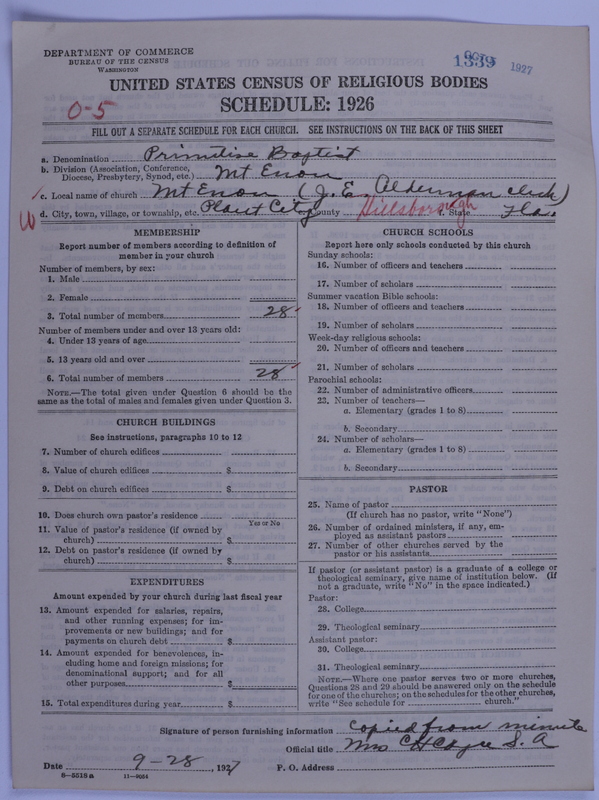 DEPARTMENT OF COMMERCE
BUREAU OF THE CENSUS
WASHINGTON
1339 1927
UNITED STATES CENSUS OF RELIGIOUS BODIES
SCHEDULE: 1926
0-5
FILL OUT A SEPARATE SCHEDULE FOR EACH CHURCH. SEE INSTRUCTIONS ON THE BACK OF THIS SHEET
a. Denomination Primitive Baptist
b. Division (Association, Conference, Diocese, Presbytery, Synod, etc.) Mt Enon
c. Local name of church Mt Enon (J. E. Alderman clerk)
d. City, town, village, or township, etc. Plant City County Hillsborough State Fla.
W
MEMBERSHIP
Report number of members according to definition of
member in your church
Number of members, by sex:
1. Male
2. Female
3. Total number of members 28
Number of members under and over 13 years old:
4. Under 13 years of age
5. 13 years old and over
6. Total number of members 28
NOTE.—The total given under Question 6 should be the
same as the total of males and females given under Question 3.
CHURCH BUILDINGS
See instructions, paragraphs 10 to 12
7. Number of church edifices
8. Value of church edifices $
9. Debt on church edifices $
10. Does church own pastor's residence
Yes or No
11. Value of pastor's residence (if owned by
church) $
12. Debt on pastor's residence (if owned by
church) $
EXPENDITURES
Amount expended by your church during last fiscal year
13. Amount expended for salaries, repairs,
and other running expenses; for im-
provements or new buildings; and for
payments on church debt $
14. Amount expended for benevolences, in-
cluding home and foreign missions; for
denominational support; and for all
other purposes $
15. Total expenditures during year $
CHURCH SCHOOLS
Report here only schools conducted by this church
Sunday schools:
16. Number of officers and teachers
17. Number of scholars
Summer vacation Bible schools:
18. Number of officers and teachers
19. Number of scholars
Week-day religious schools:
20. Number of officers and teachers
21. Number of scholars
Parochial schools:
22. Number of administrative officers
23. Number of teachers—
a. Elementary (grades 1 to 8)
b. Secondary
24. Number of scholars—
a. Elementary (grades 1 to 8)
b. Secondary
PASTOR
25. Name of pastor
(If church has no pastor, write "None")
26. Number of ordained ministers, if any, em-
ployed as assistant pastors
27. Number of other churches served by the
pastor or his assistants
If pastor (or assistant pastor) is a graduate of a college or
theological seminary, give name of institution below. (If
not a graduate, write "No" in the space indicated.)
Pastor:
28. College
29. Theological seminary
Assistant pastor:
30. College
31. Theological seminary
NOTE.—Where one pastor serves two or more churches,
Questions 28 and 29 should be answered only on the schedule
for one of the churches; on the schedules for the other churches,
write "See schedule for church."
Signature of person furnishing information Copied from minute
Official title Mrs C H S. A
Date 9-28, 1927 P. O. Address
8-5518a 11-9054